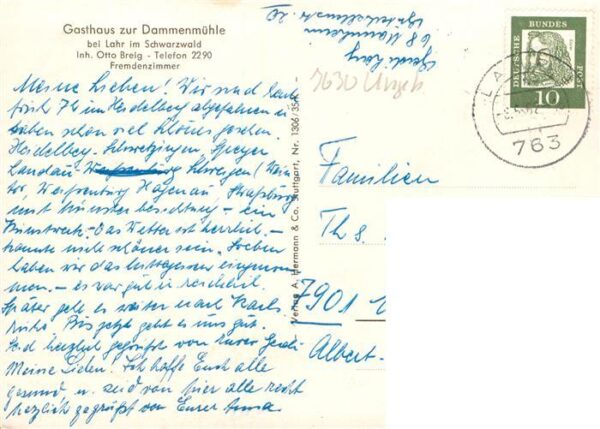 Gasthaus zur Dammenmühle
bei Lahr im Schwarzwald
Inh. Otto Breig - Telefon 2290
Fremdenzimmer
Meine Lieben! Wir sind heute
früh 7h in Heidelberg abgefahren u.
haben schon viel Schönes gesehen.
Heidelberg - Schwetzingen, Speyer
Landau - Schweigen (Wein
tor, Weissenburg Hagenau - Straßburg
mit Münster besichtung - ein
Kunstwerk - Das Wetter ist herrlich. -
könnte nicht schöner sein. Soeben
haben wir das Mittagessen eingenom
men. - es war gut u. reichlich.
Später geht es weiter nach Karls
ruhe. Bis jetzt geht es uns gut.
Seid herzlich gegrüßt von Eurer
Meine Lieben! Ich hoffe Euch alle
gesund u. seid von hier alle recht
herzlich gegrüßt von Eurer Anna
Verlag A. Hermann & Co., Stuttgart, Nr. 1306/354
68 Mannheim
DEUTSCHE BUNDES POST
10
763
Familien
Th
7901
Albert-